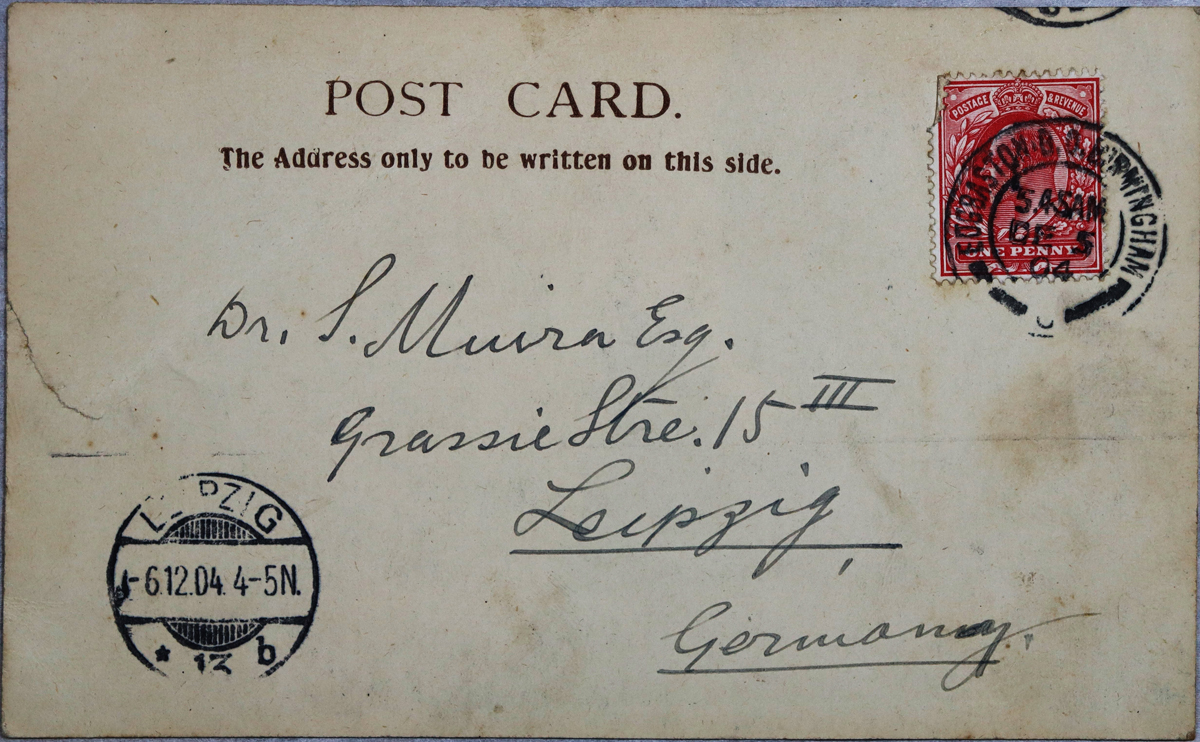 POST CARD.
The Address only to be written on this side.
POSTAGE & REVENUE
ONE PENNY
EDGBASTON.B.O. BIRMINGHAM
5.45AM
DE 5
04
Dr. S. Miura Esq.
Grassie Stre. 15 III
Leipzig,
Germany.
LEIPZIG
-6.12.04. 4-5N.
* 13 b